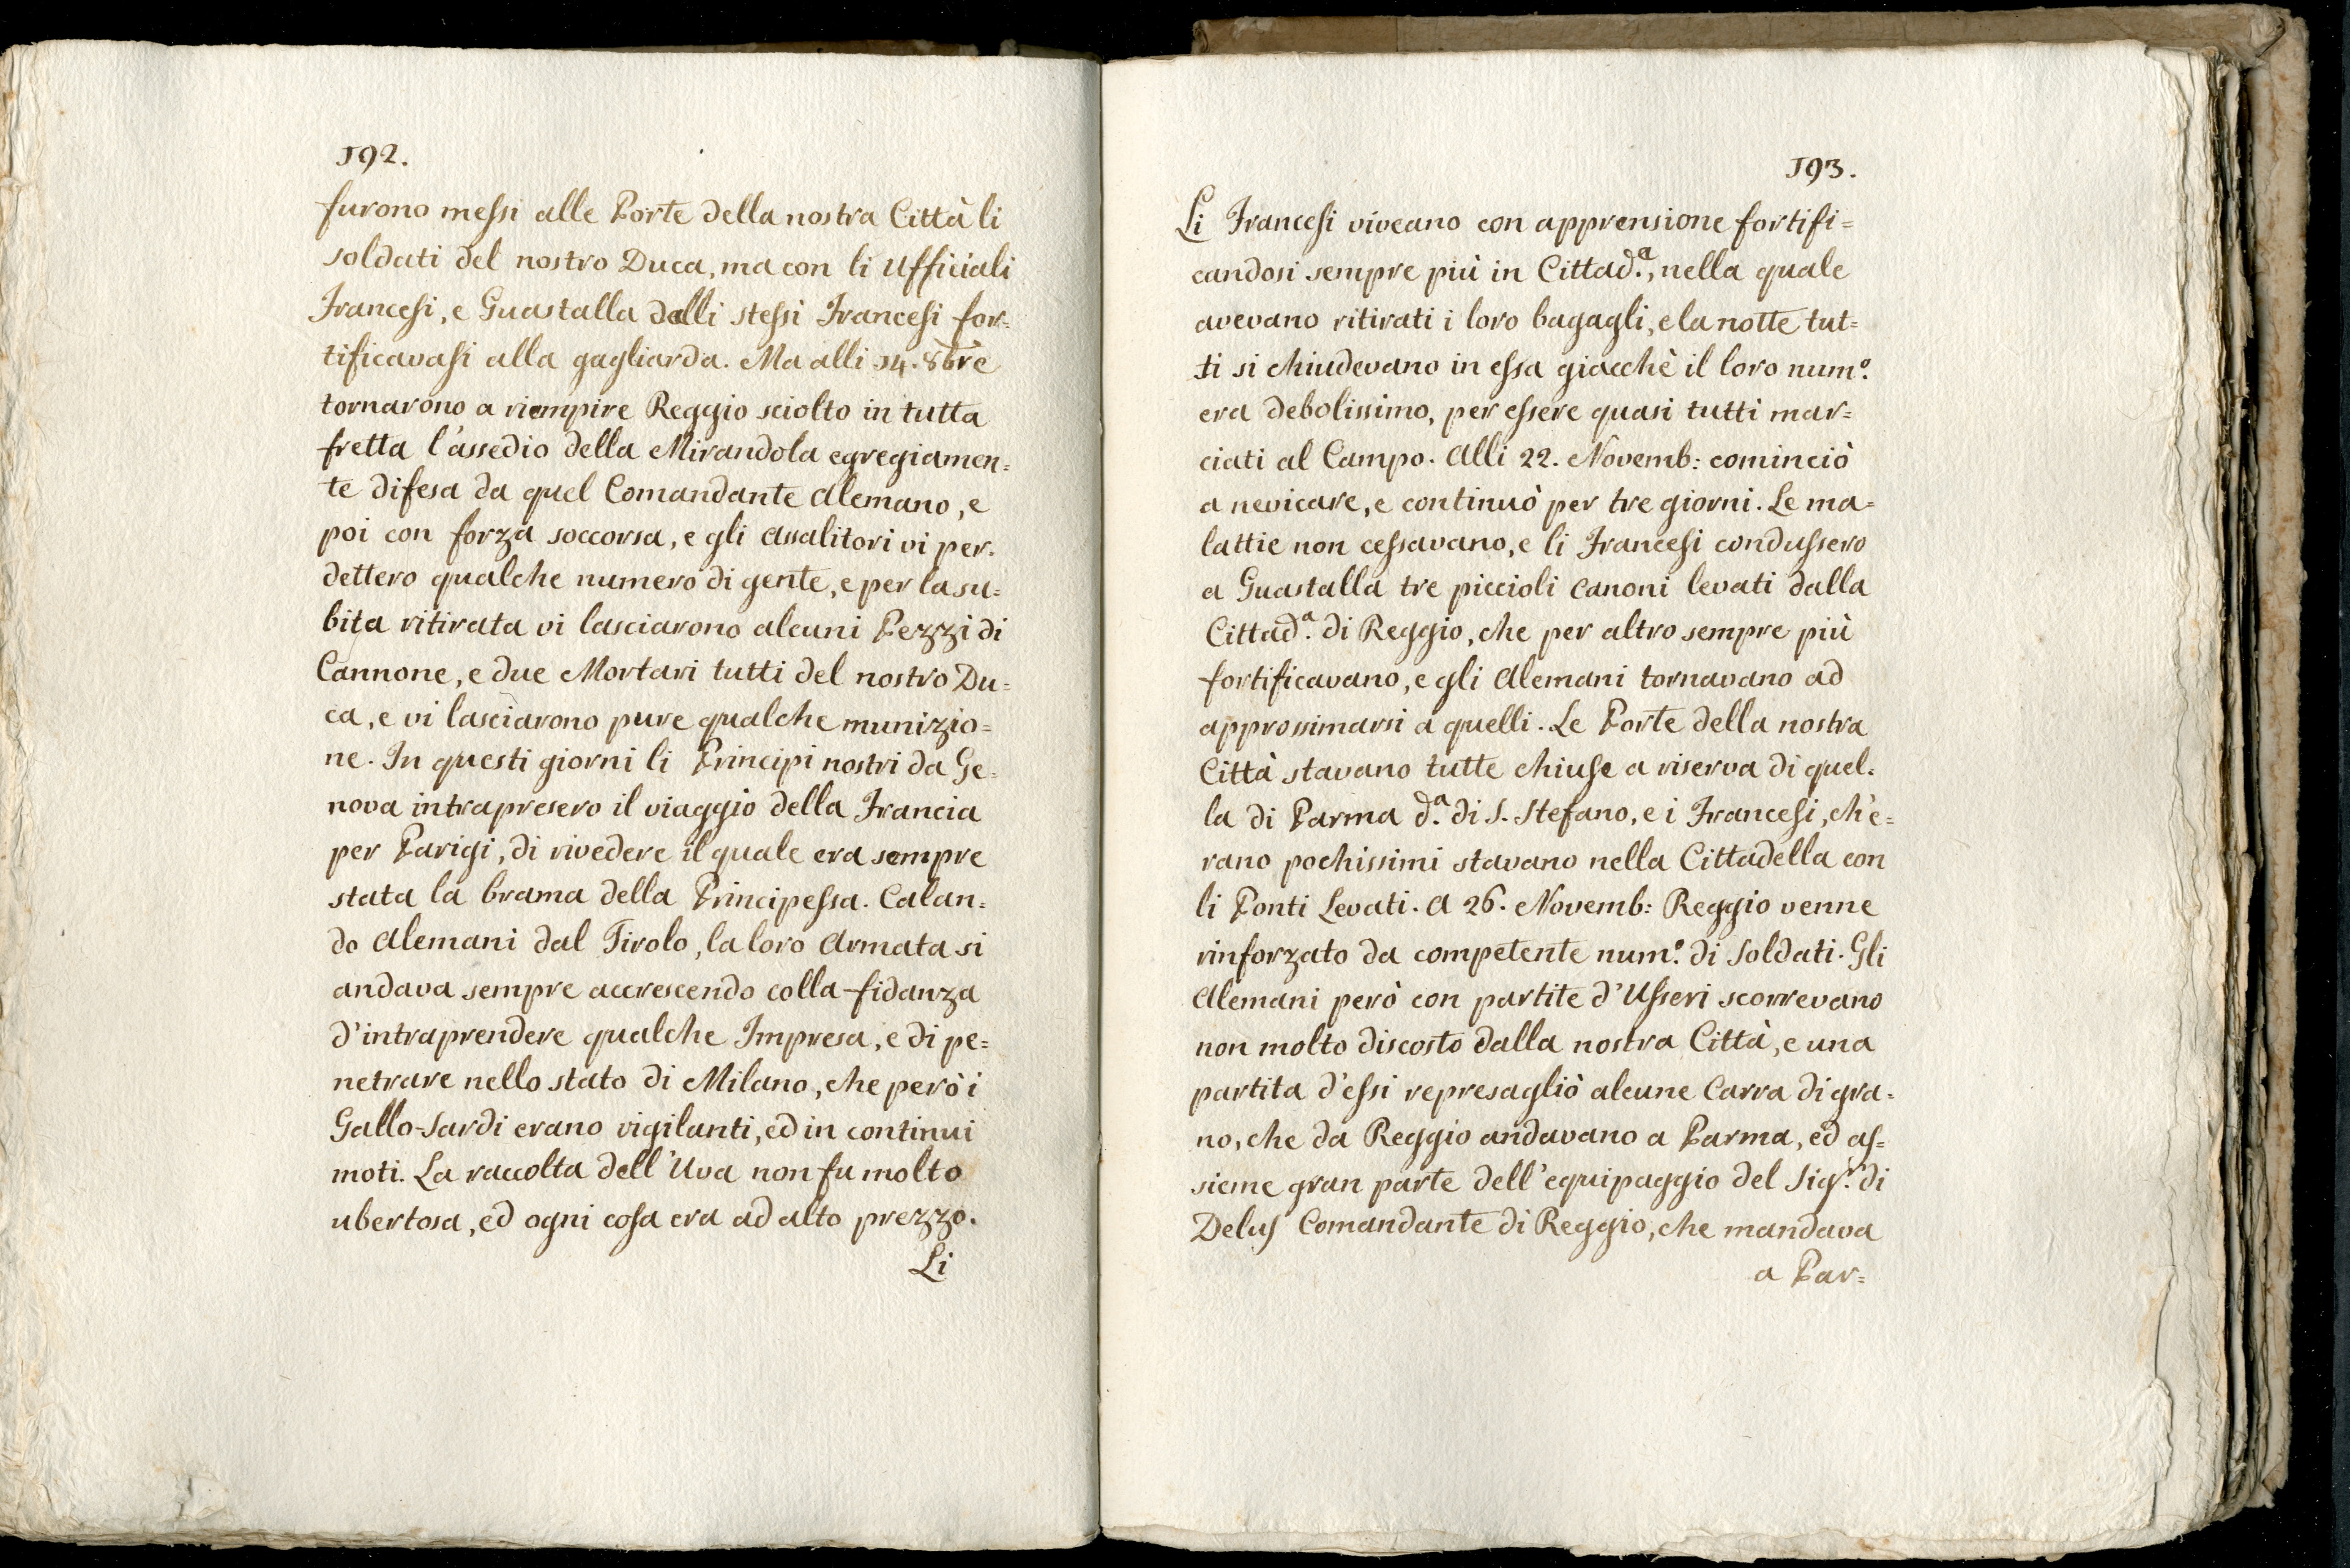 192.
furono messi alle Porte della nostra Città li
soldati del nostro Duca, ma con li Ufficiali
Francesi, e Guastalla dalli stessi Francesi for-
tificavasi alla gagliarda. Ma alli 14. 8bre
tornarono a riempire Reggio sciolto in tutta
fretta l'assedio della Mirandola egregiamen=
te difesa da quel Comandante Alemano, e
poi con forza soccorsa, e gli Assalitori vi per-
dettero qualche numero di gente, e per la su=
bita ritirata vi lasciarono alcuni Pezzi di
Cannone, e due Mortari tutti del nostro Du=
ca, e vi lasciarono pure qualche munizio=
ne. In questi giorni li Principi nostri da Ge=
nova intrapresero il viaggio della Francia
per Parigi, di rivedere il quale era sempre
stata la brama della Principessa. Calan=
do Alemani dal Tirolo, la loro Armata si
andava sempre accrescendo colla fidanza
d'intraprendere qualche Impresa, e di pe=
netrare nello stato di Milano, che però i
Gallo-Sardi erano vigilanti, ed in continui
moti. La raccolta dell'Uva non fu molto
ubertosa, ed ogni cosa era ad alto prezzo.
Li
193.
Li Francesi viveano con apprensione fortifi=
candosi sempre più in Cittad.ª, nella quale
avevano ritirati i loro bagagli, e la notte tut=
ti si chiudevano in essa giacchè il loro num.º
era debolissimo, per essere quasi tutti mar=
ciati al Campo. Alli 22. Novemb: cominciò
a nevicare, e continuò per tre giorni. Le ma=
lattie non cessavano, e li Francesi condussero
a Guastalla tre piccioli Canoni levati dalla
Cittad.ª di Reggio, che per altro sempre più
fortificavano, e gli Alemani tornavano ad
approssimarsi a quelli. Le Porte della nostra
Città stavano tutte chiuse a riserva di quel=
la di Parma d.ª di S. Stefano, e i Francesi, ch'e=
rano pochissimi stavano nella Cittadella con
li Ponti Levati. A 26. Novemb: Reggio venne
rinforzato da competente num.º di Soldati. Gli
Alemani però con partite d'Usseri scorrevano
non molto discosto dalla nostra Città, e una
partita d'essi represagliò alcune Carra di gra=
no, che da Reggio andavano a Parma, ed as=
sieme gran parte dell'equipaggio del Sig.r di
Delus Comandante di Reggio, che mandava
a Par=